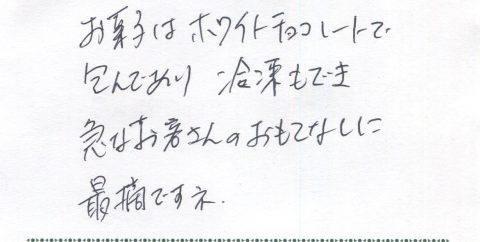 お菓子はホワイトチョコレートで
包んであり 冷凍もでき
急なお客さんのおもてなしに
最適ですネ.